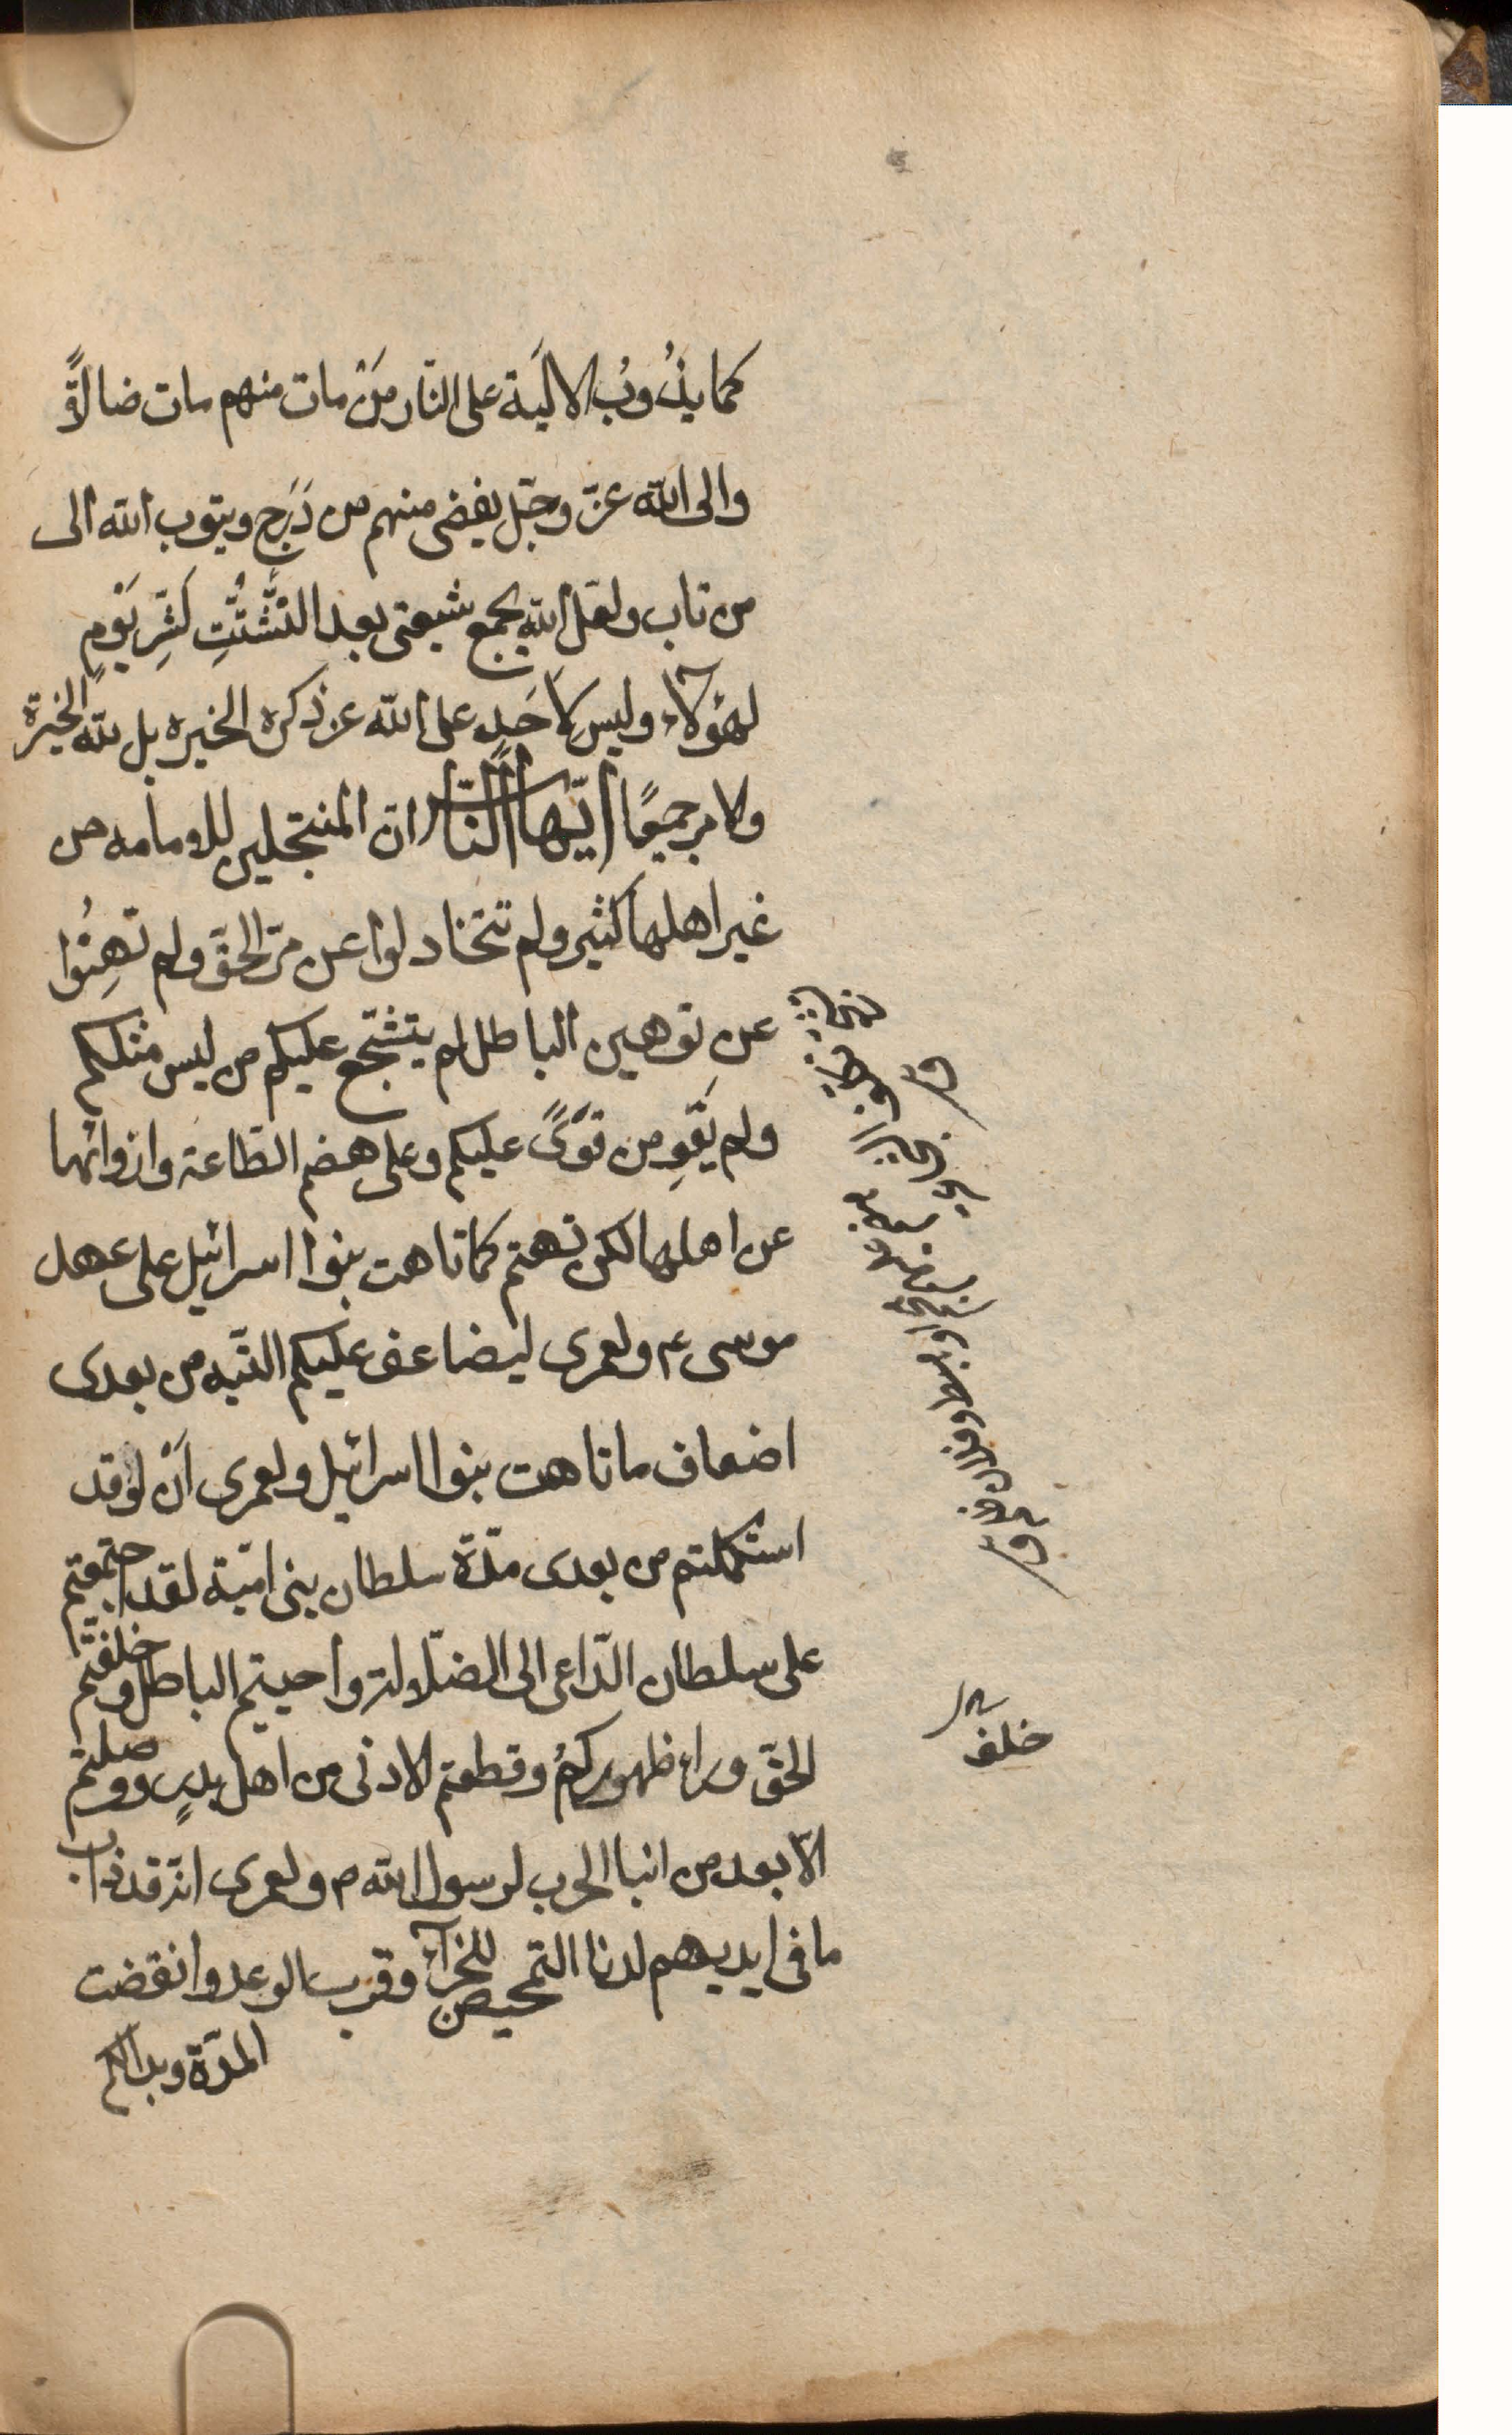 كما يذُوبُ الاليَة على النّار مَنْ مات منهم مات ضالاًّ
والى الله عزّ وجّل يفضى منهم من دَرَج ويتوب الله الى
من تاب ولعّل الله يجمع شيعتى بعد التَّشتُّتِ لشَرِّ يَوْمٍ
لهؤلاء وليس لِاَحَدٍ على الله عز ذكره الخيره بل لله الخيَرة
والامر جميعًا ايّها النّاس ان المنتحلين للامامه من
غير اهلها كثير ولم تتخادلوا عن مرّ الحقّ ولم تَهِنُوا
عن توهين الباطل لم يتشجّع عليكم من ليس مثلكم
ولم يَقْوِ من قوَىً عليكم وعلى هضم الطّاعة وازوائها
عن اهلها لكن تهتم كما تاهت بنوا اسرائيل على عهد
موسى ء م ولعمرى ليضاعف عليكم التّيه من بعدى
اضعاف ما تاهت بنوا اسرائيل ولعمرى اَنْ لو قد
استكملتم من بعدى مدّة سلطان بنى اميّة لقد اجتمعتم
على سلطان الدّاعى الى الضّلالة واحييتم الباطل وخلفتم
الحقّ وراء ظهوركم وقطعتم الادنى من اهل بدرٍ ووصلتم
الابعد من ابنا الحرب لرسول الله ص ولعمرى ان قد ذاب
ما فى ايديهم لدنا التمحيص للجزآء وقرب الوعد وانقضت
المدّة وبدا لكم
خلف